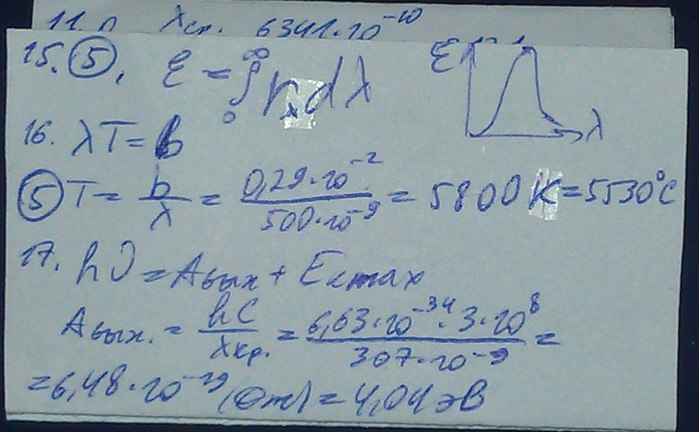 λкр. 6341·10⁻¹⁰
15. ⑤. ε = ∫₀^∞ rλ dλ
λ
16. λT = b
⑤ T = b/λ = 0,29·10⁻²/500·10⁻⁹ = 5800 K = 5530°C
17. hν = Aвых + Eкmax
Aвых. = hC/λкр. = 6,63·10⁻³⁴·3·10⁸/307·10⁻⁹ =
= 6,48·10⁻¹⁹ (Дж) = 4,04 эВ